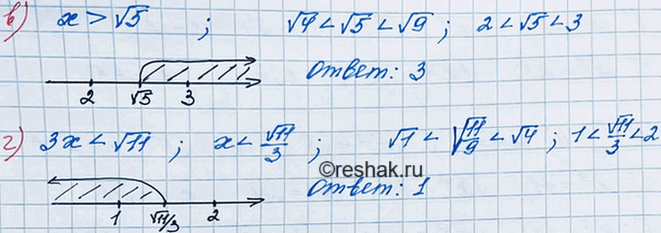 в) x > √5 ; √4 < √5 < √9 ; 2 < √5 < 3
2 √5 3 Ответ: 3
г) 3x < √11 ; x < √11/3 ; √1 < √(11/9) < √4 ; 1 < √11/3 < 2
©reshak.ru
1 √11/3 2 Ответ: 1